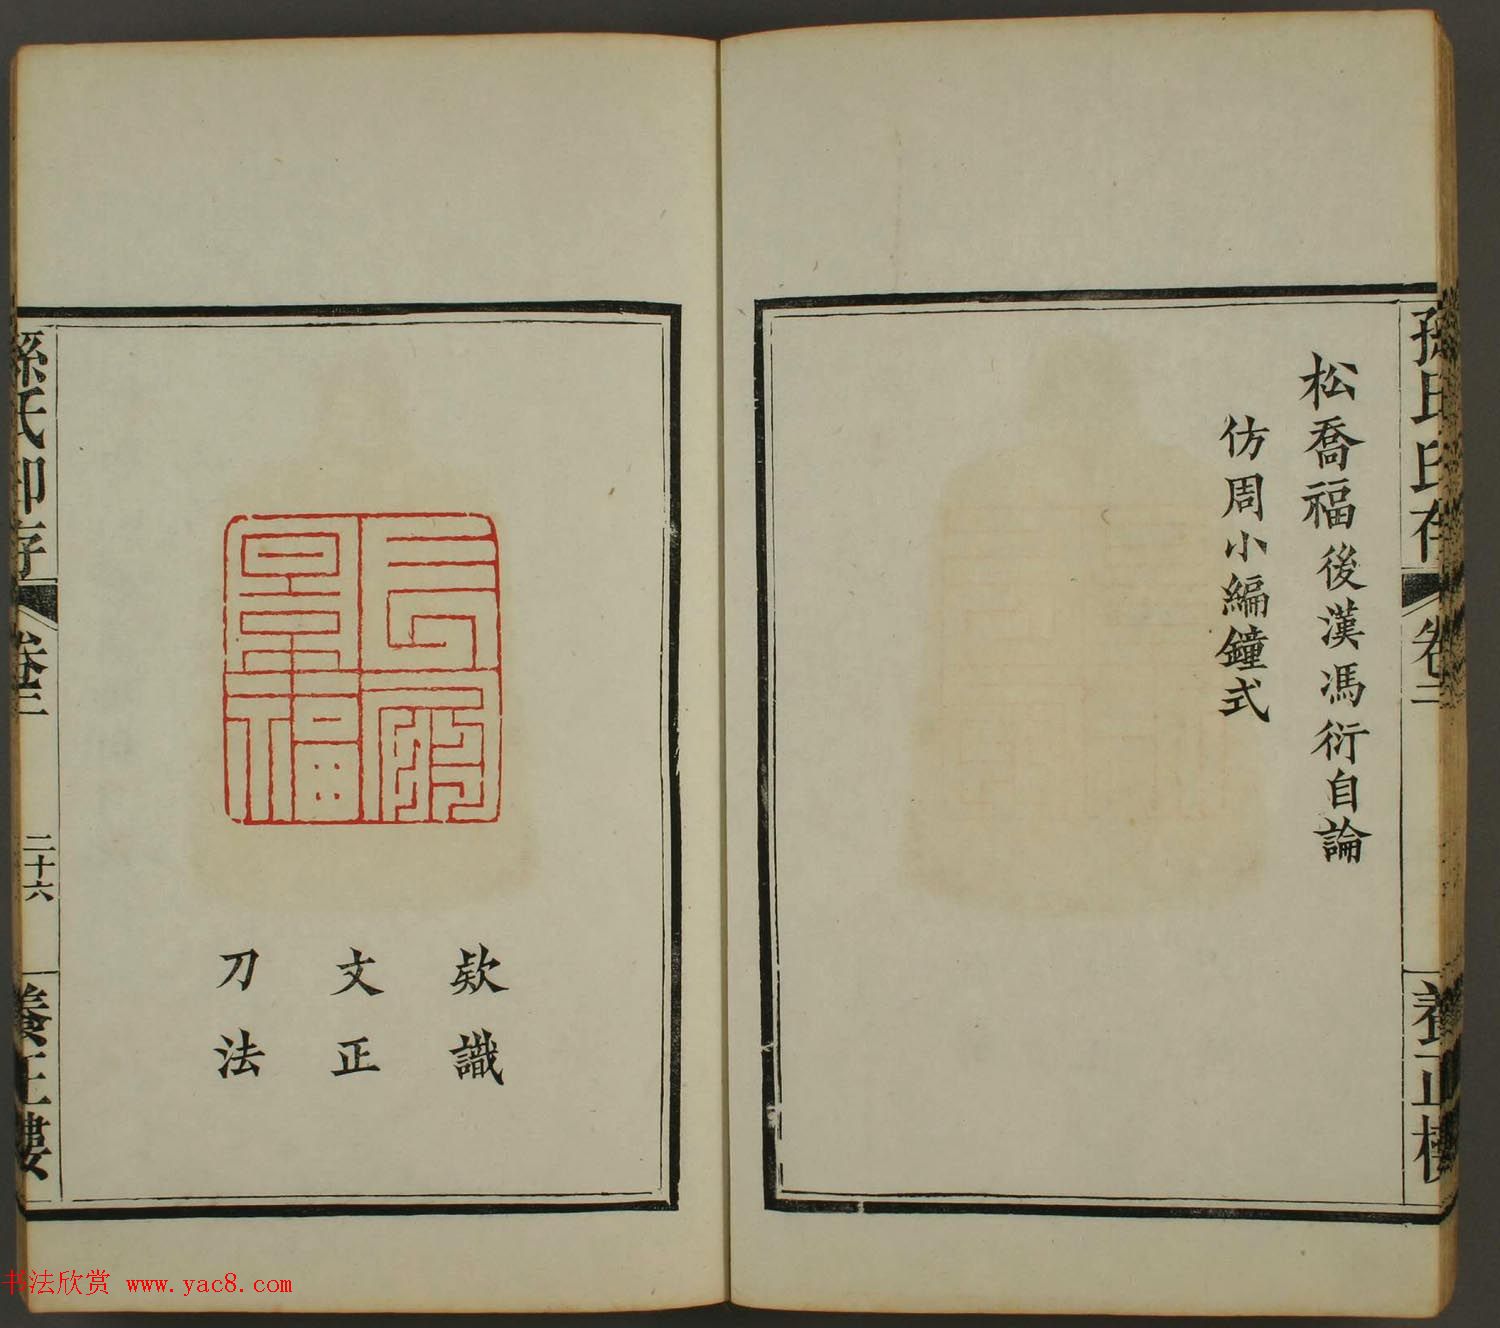 孫氏印存
卷三
養正樓
松喬福後漢馮衍自論
仿周小編鐘式
欵識
文正
刀法
孫氏印存
卷三
二十六
養正樓
书法欣赏 www.yac8.com